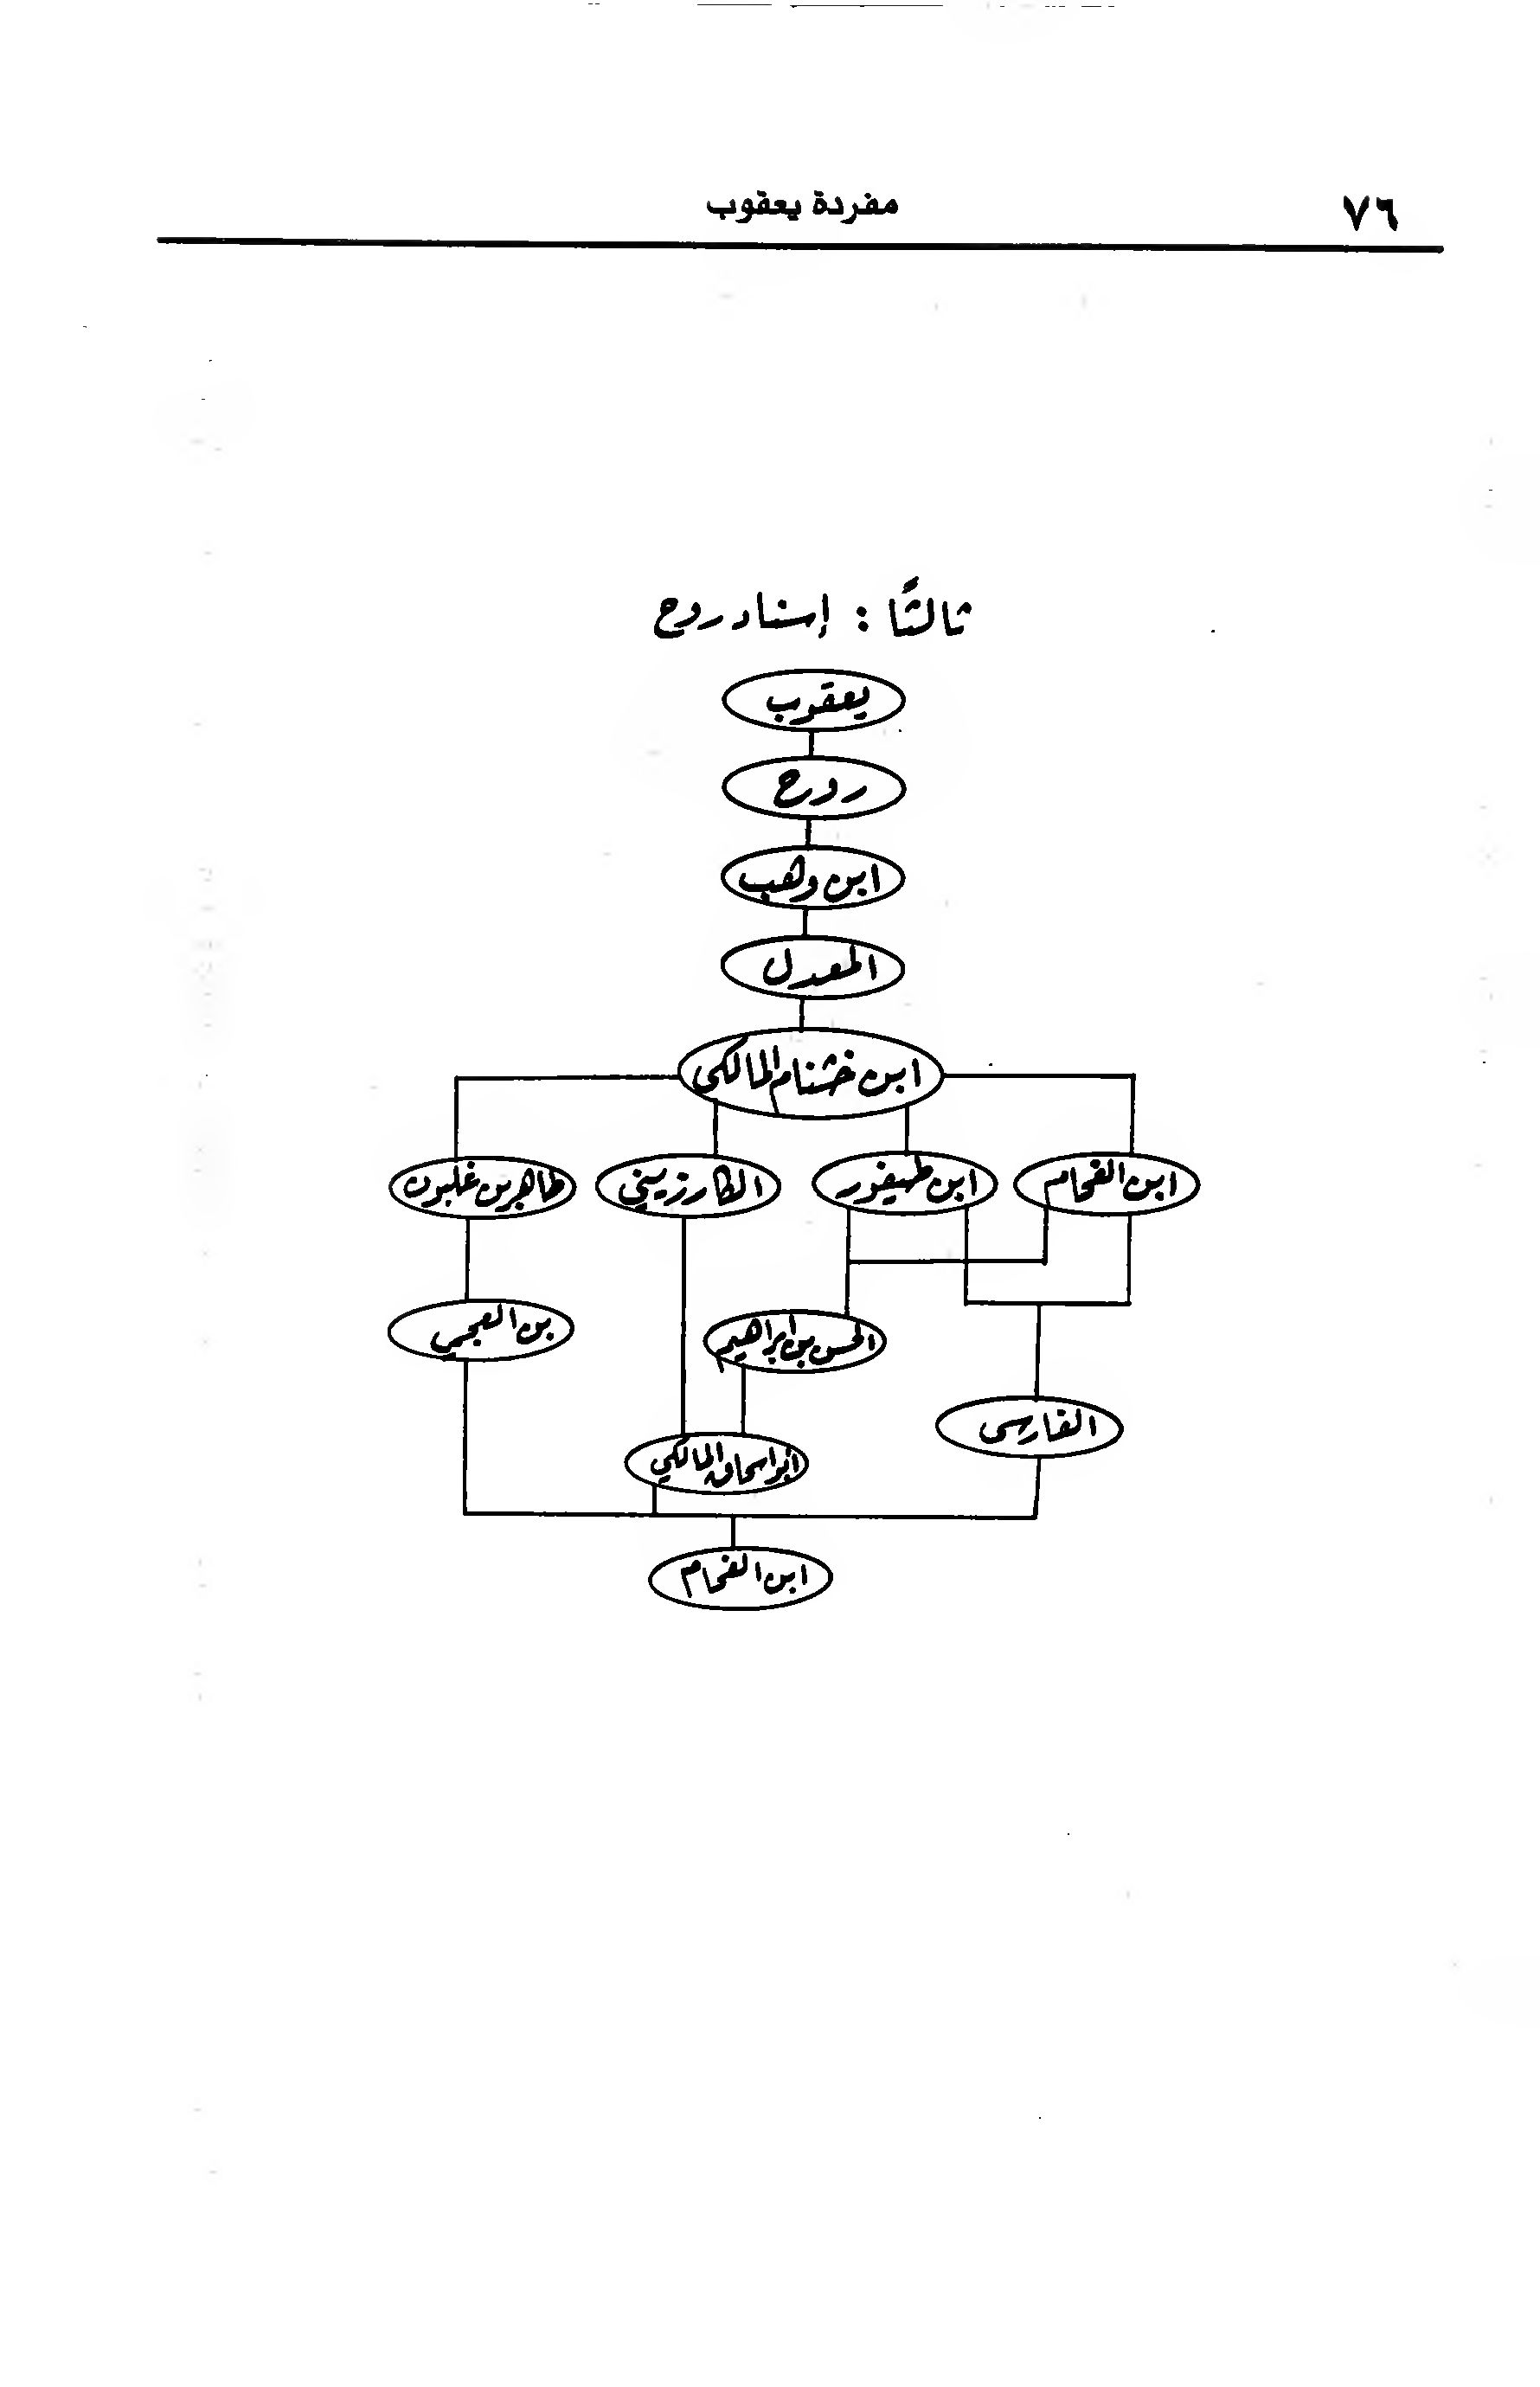 ٧٦
مفردة يعقوب
ثالثًا : إسناد روح
يعقوب
روح
ابن وهب
المعدل
ابن خشنام المالكي
ابن الفحام
ابن طيفور
الكارزيني
طاهر بن غلبون
بن العجمي
الحسن بن إبراهيم
الفارسي
أبو اسحاق المالكي
ابن الفحام